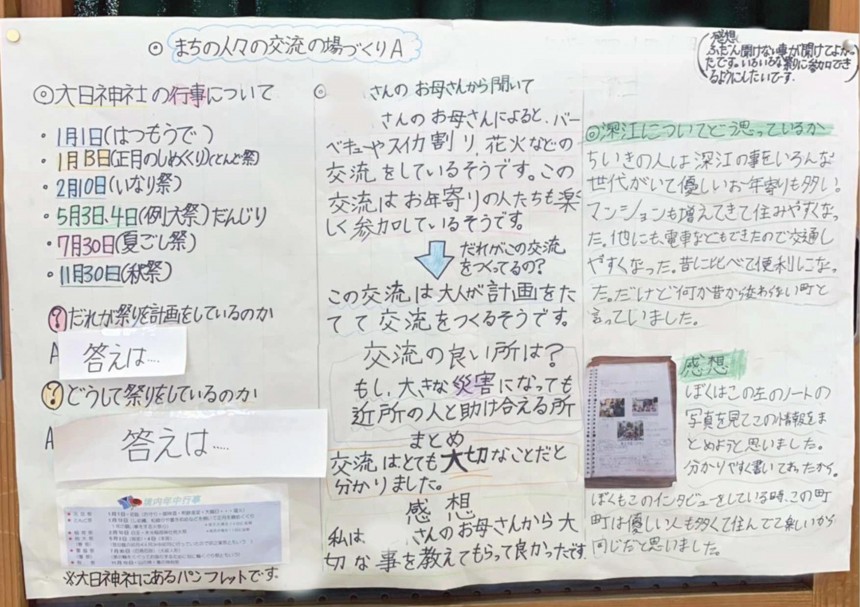 ◎ まちの人々の交流の場づくりA
感想
ふだん聞けない事が聞けてよかっ
たです。いろいろな祭りに参加でき
るようにしたいです。
◎大日神社の行事について
・1月1日(はつもうで)
・1月13日(正月のしめくくり)(とんど祭)
・2月10日(いなり祭)
・5月3日、4日(例大祭)だんじり
・7月30日(夏ごし祭)
・11月30日(秋祭)
?だれが祭りを計画をしているのか
A 答えは....
?どうして祭りをしているのか
A 答えは.....
境内年中行事
※大日神社にあるパンフレットです。
◎ さんの お母さんから聞いて
さんの お母さんによると、バー
ベキューやスイカ割り、花火などの
交流をしているそうです。この
交流はお年寄りの人たちも楽
しく参加しているそうです。
だれがこの交流
をつくってるの?
この交流は大人が計画をた
てて交流をつくるそうです。
交流の良い所は?
もし、大きな災害になっても
近所の人と助け合える所
まとめ
交流はとても大切なことだと
分かりました。
感想
私は さんのお母さんから大
切な事を教えてもらって良かったです
◎深江についてどう思っているか
ちいきの人は深江の事をいろんな
世代がいて優しいお年寄りも多い。
マンションも増えてきて住みやすくなっ
た。他にも、電車などもできたので交通し
やすくなった。昔に比べて便利になっ
た。だけど何か昔から変わらない町と
言っていました。
感想
ぼくはこの左のノートの
写真を見てこの情報をま
とめようと思いました。
分かりやすく書いてあったから。
ぼくもこのインタビューをしている時、この町
町は優しい人も多くて住んでて楽しいから
同じだと思いました。